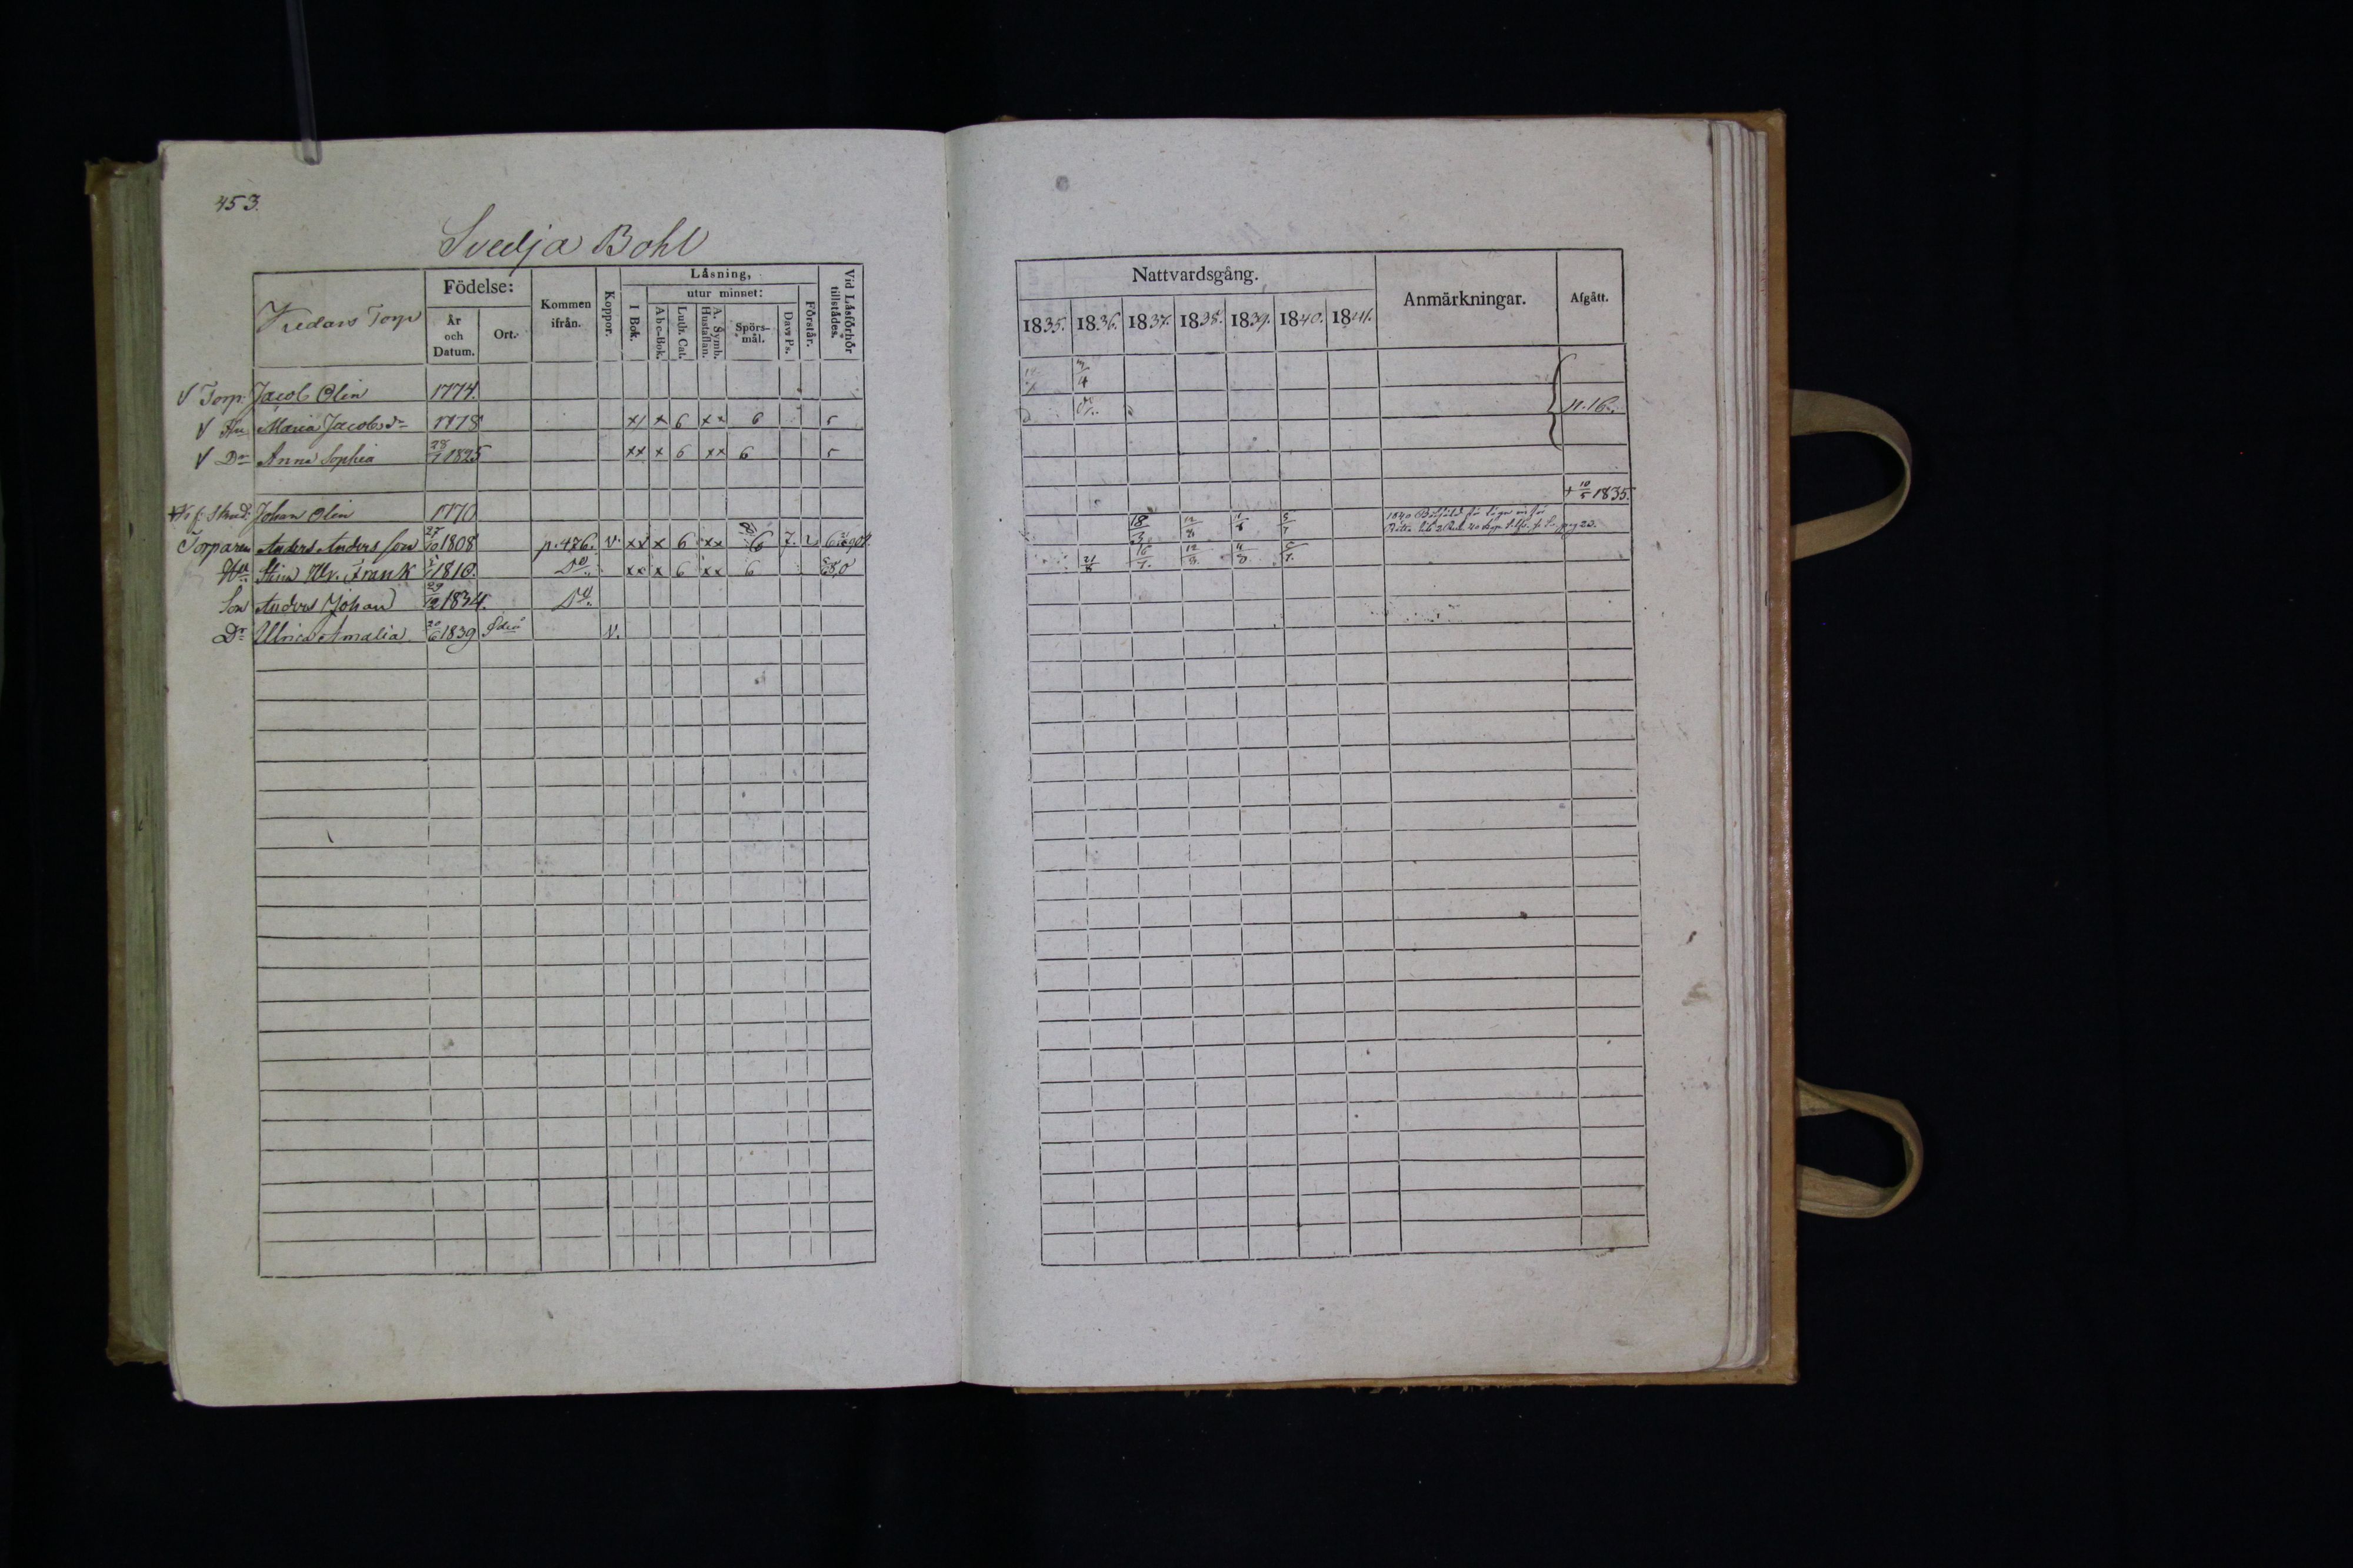 453.
Svedja Bohl
Vredars Torp
Födelse:
År och Datum.
Ort.
Kommen ifrån.
Koppor.
Låsning,
I Bok.
utur minnet:
Abc-Bok.
Luth. Cat.
A. Symb. Hustaflan.
Spörsmål.
Dav. Ps.
Förstår.
Vid Låsförhör tillstådes.
V Torp. Jacob Olin 1774.
V Hu Maria Jacobsdr 1778 x x 6 xx 6 5
V Dr Anna Sophia 28/7 1825 xx x 6 xx 6 5
Johan Olin 1770
Torparen Anders Andersson 27/10 1808 p. 476. v. xx x 6 xx 6 7.
Hu Stina Ulr. Frank 1810. Do xx x 6 xx 6
Son Anders Johan 29/12 1834. Do
Dr Ulrica Amalia 20/6 1839 v.
Nattvardsgång.
Anmärkningar.
Afgått.
1835. 1836. 1837. 1838. 1839. 1840. 1841.
p. 16.
† 10/5 1835.
18/3 12/8 11/8 5/7
1840
21/8 16/7. 12/8. 11/8 5/7.